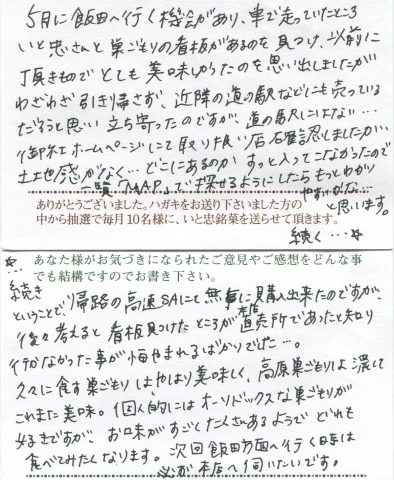 5月に飯田へ行く機会があり、車で走っていたところ
いと忠さんと巣ごもりの看板があるのを見つけ、以前に
頂きものでとても美味しかったのを思い出しましたが
わざわざ引き帰さず、近隣の道の駅などにも売っている
だろうと思い立ち寄ったのですが、道の駅にはない…
御社ホームページにて取り扱い店確認しましたが、
土地感がなく…どこにあるのかすっと入ってこなかったので
一覧「MAP」で探せるようにしたらもっとわかり
やすいかな…
と思います。
ありがとうございました。ハガキをお送り下さいました方の
中から抽選で毎月10名様に、いと忠銘菓を送らせて頂きます。
続く…☆
☆…
続き
あなた様がお気づきになられたご意見やご感想をどんな事
でも結構ですのでお書き下さい。
ということで、帰路の高速SAにて無事に購入出来たのですが、
後々考えると看板見つけたところが本店直売所であったと知り
行かなかった事が悔やまれるばかりでした…。
久々に食す巣ごもりはやはり美味しく、高原巣ごもりは濃くて
これまた美味。個人的にはオーソドックスな巣ごもりが
好きですが、お味がすごくたくさんあるようでどれも
食べてみたくなります。次回飯田方面へ行く時は
必ず本店へ伺いたいです。